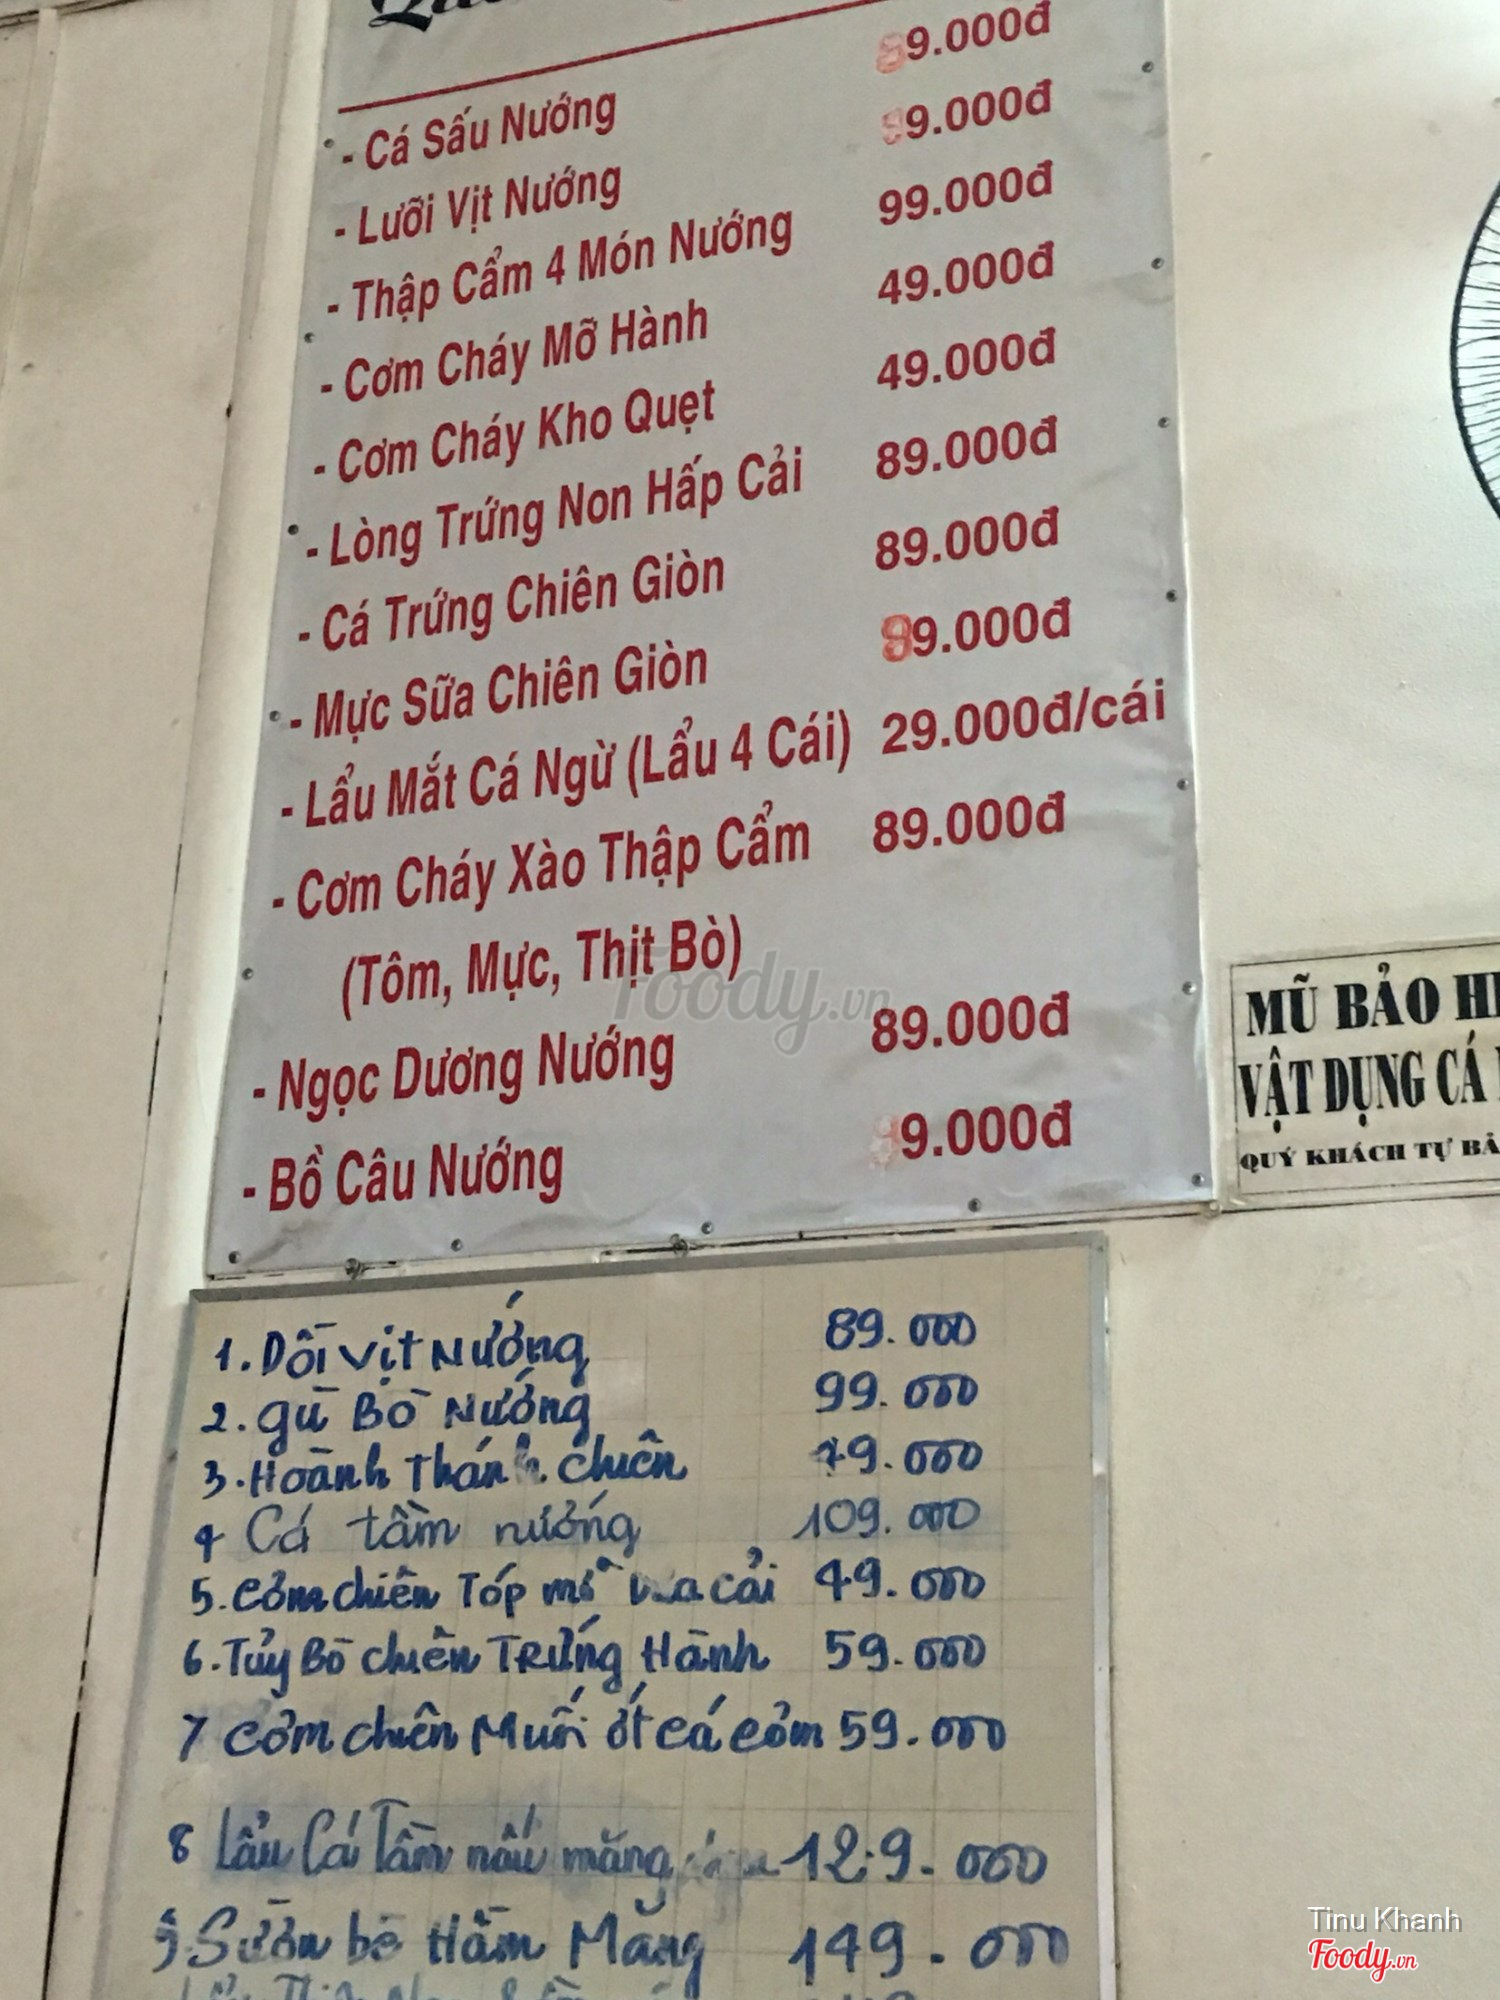 9.000đ
- Cá Sấu Nướng 9.000đ
- Lưỡi Vịt Nướng 99.000đ
- Thập Cẩm 4 Món Nướng 49.000đ
- Cơm Cháy Mỡ Hành 49.000đ
- Cơm Cháy Kho Quẹt 89.000đ
- Lòng Trứng Non Hấp Cải 89.000đ
- Cá Trứng Chiên Giòn 99.000đ
- Mực Sữa Chiên Giòn
- Lẩu Mắt Cá Ngừ (Lẩu 4 Cái) 29.000đ/cái
- Cơm Cháy Xào Thập Cẩm 89.000đ
(Tôm, Mực, Thịt Bò)
- Ngọc Dương Nướng 89.000đ
- Bồ Câu Nướng 9.000đ
Foody.vn
MŨ BẢO
VẬT DỤNG CÁ
QUÝ KHÁCH TỰ
1. Dồi vịt Nướng 89.000
2. gù Bò Nướng 99.000
3. Hoành Thánh chiên 79.000
4 Cá tầm nướng 109.000
5. Cơm chiên Tóp mỡ cải 49.000
6. Tủy Bò chiên Trứng Hành 59.000
7 Cơm chiên Muối ớt cá cơm 59.000
8 Lẩu Cá Tầm nấu măng 129.000
9. Sườn bò Hầm Măng 149.000
Tinu Khanh
Foody.vn